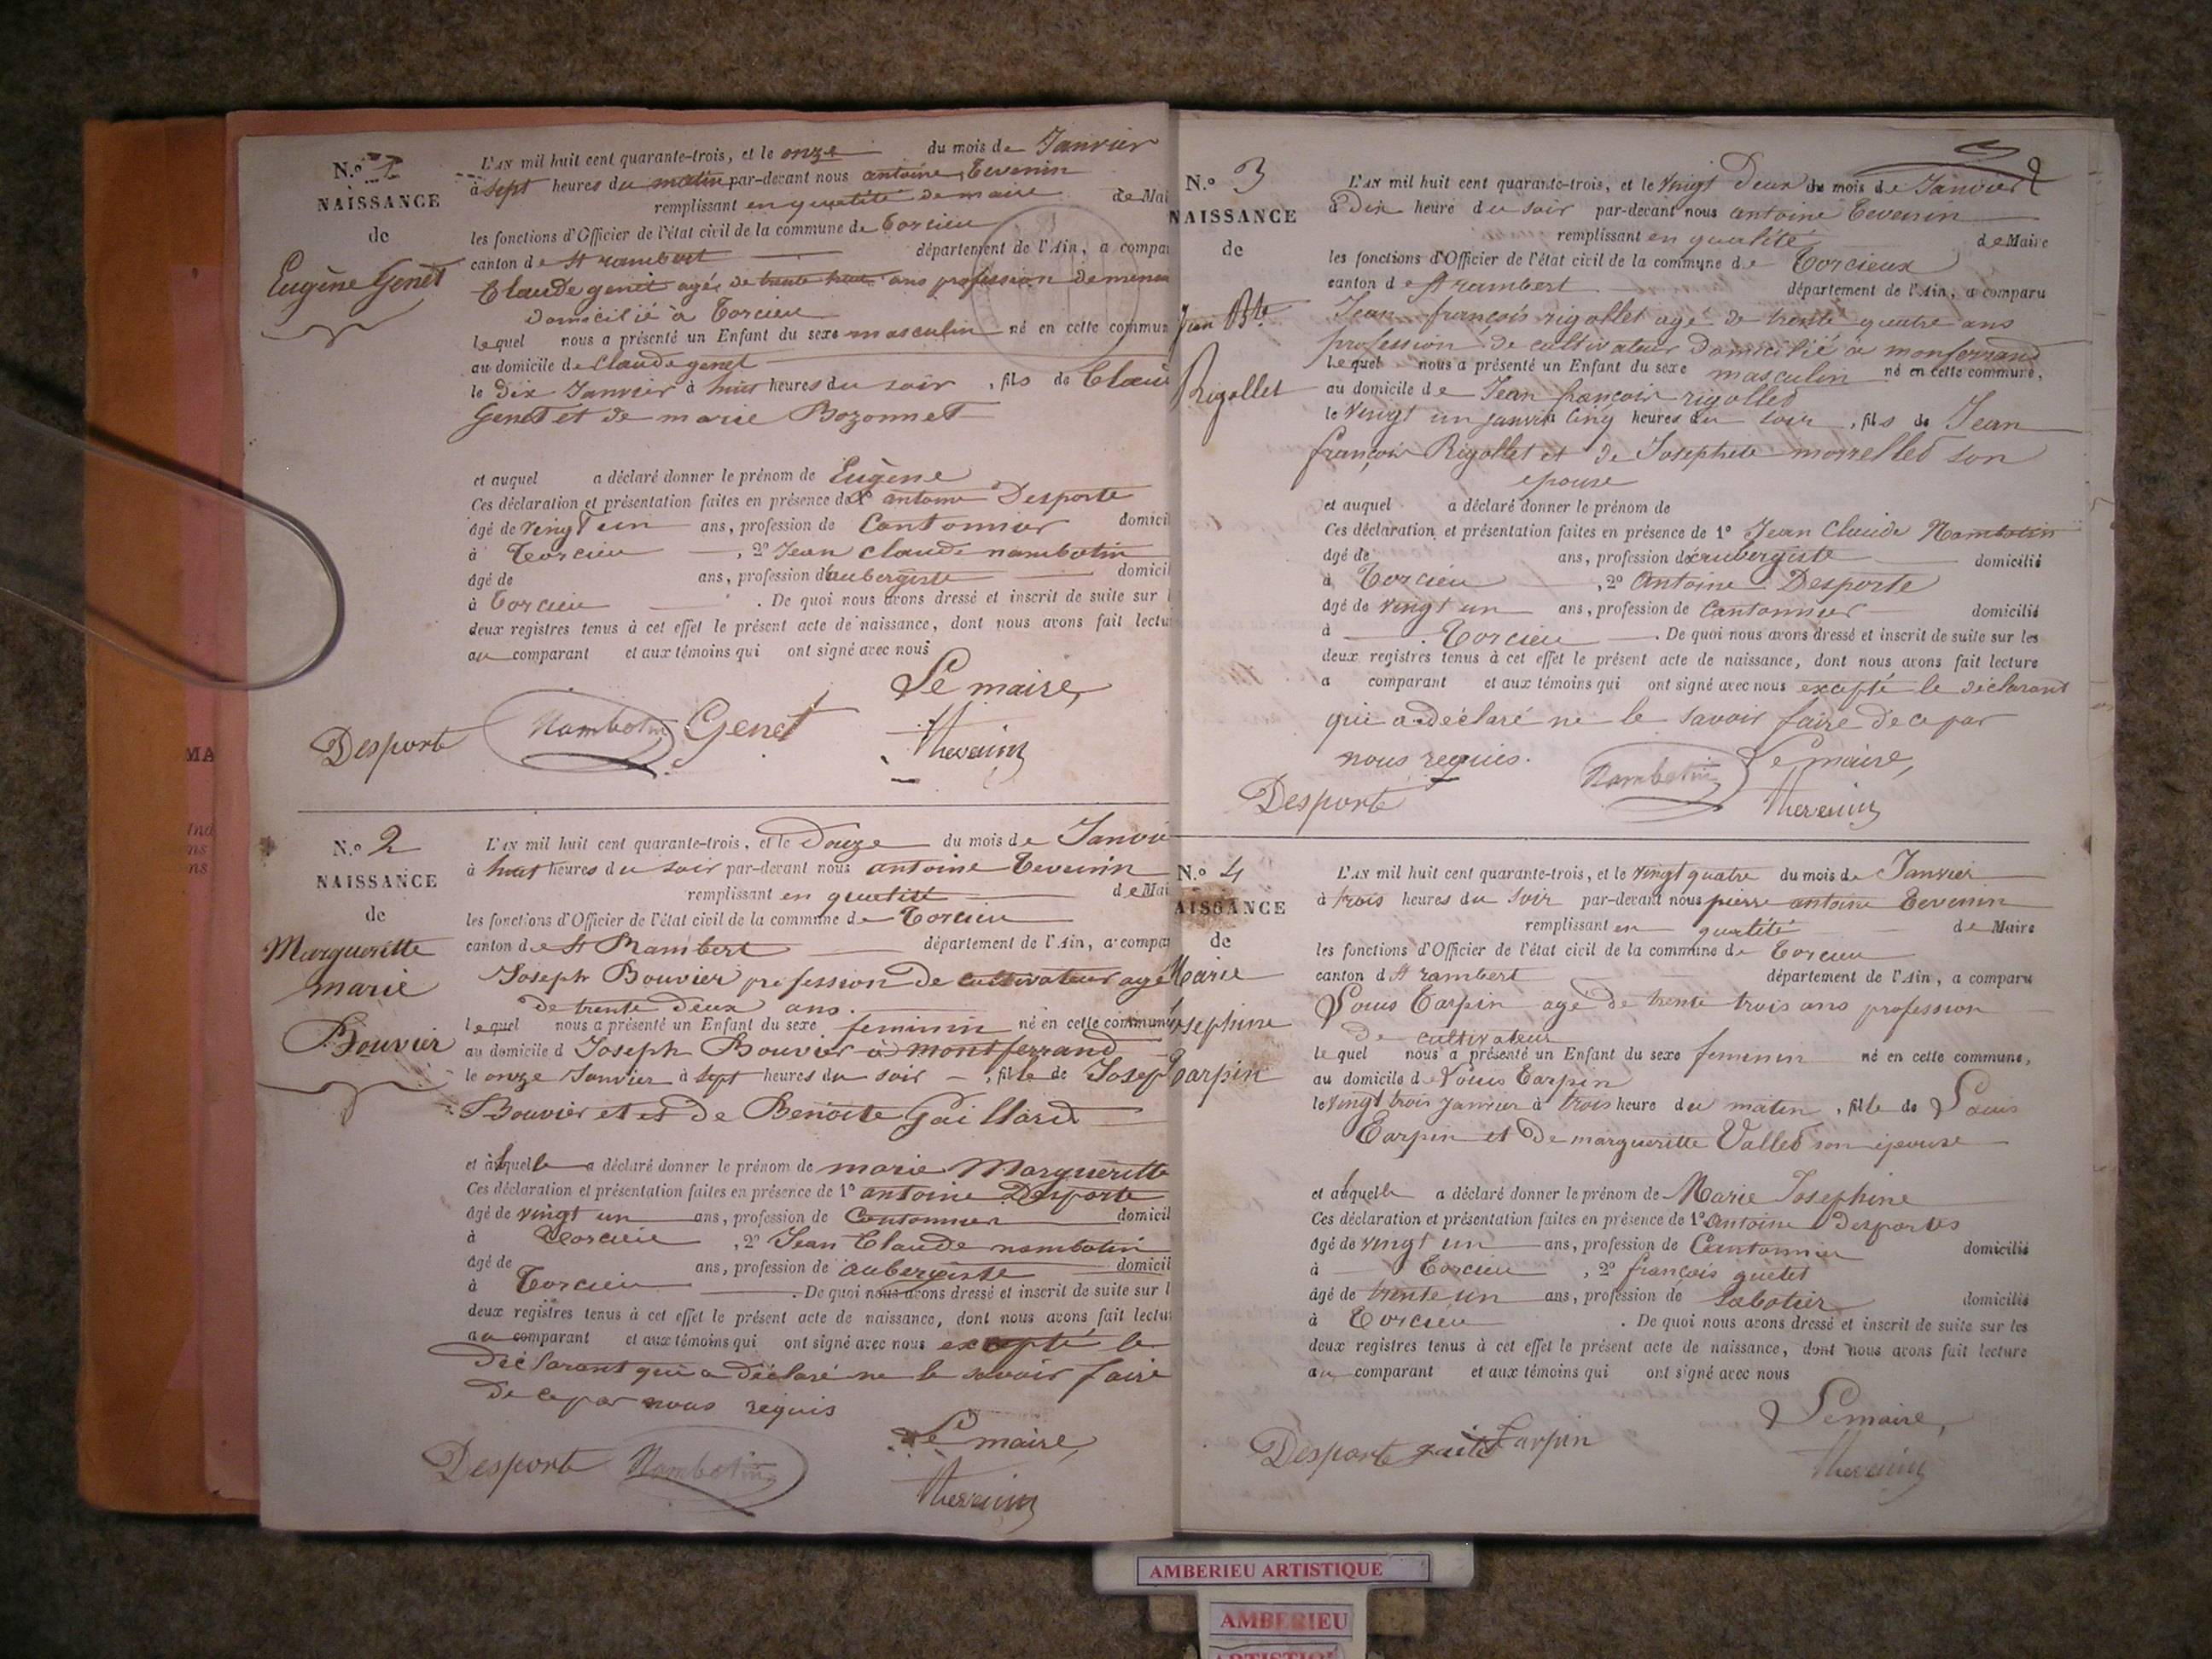 N.º 1
NAISSANCE
de
Eugène Genet
L'AN mil huit cent quarante-trois, et le onze du mois de Janvier
à sept heures du matin par-devant nous antoine Tevenin
remplissant en qualité de maire de Mai
les fonctions d'Officier de l'état civil de la commune de Torcieu
canton de St rambert département de l'Ain, a compa
Claude genet agé de trente huit ans profession de
domicilié à Torcieu
lequel nous a présenté un Enfant du sexe masculin né en cette commun
au domicile de Claude genet
le Dix Janvier à huit heures du soir, fils de Clau
Genet et de marie Bozonnet
et auquel a déclaré donner le prénom de Eugène
Ces déclaration et présentation faites en présence de 1º antoine Desporte
âgé de vingt un ans, profession de Cantonnier domicil
à Torcieu, 2º Jean claude nambotin
âgé de ans, profession d'aubergiste domicil
à Torcieu. De quoi nous avons dressé et inscrit de suite sur l
deux registres tenus à cet effet le présent acte de naissance, dont nous avons fait lectu
au comparant et aux témoins qui ont signé avec nous
Le maire,
Desporte Nambotin Genet Thevenin
N.º 2
NAISSANCE
de
Margueritte
marie
Bouvier
L'AN mil huit cent quarante-trois, et le Douze du mois de Janvi
à huit heures du soir par-devant nous antoine Tevenin
remplissant en qualité de Mai
les fonctions d'Officier de l'état civil de la commune de Torcieu
canton de St Rambert département de l'Ain, a compa
Joseph Bouvier profession de cultivateur agé
de trente deux ans.
lequel nous a présenté un Enfant du sexe feminin né en cette commune
au domicile d Joseph Bouvier à montferrand
le onze Janvier à sept heures du soir, fille de Josep
Bouvier et et de Benoite Gaillard
et à laquelle a déclaré donner le prénom de marie Margueritte
Ces déclaration et présentation faites en présence de 1º antoine Desporte
âgé de vingt un ans, profession de Cantonnier domicil
à Torcieu, 2º Jean Claude nambotin
âgé de ans, profession de aubergiste domicil
à Torcieu. De quoi nous avons dressé et inscrit de suite sur l
deux registres tenus à cet effet le présent acte de naissance, dont nous avons fait lectu
au comparant et aux témoins qui ont signé avec nous excepté le
déclarant qui a déclaré ne le savoir faire
de ce par nous requis
Le maire,
Desporte Nambotin Thevenin
N.º 3
NAISSANCE
de
Jean Bte
Rigollet
L'AN mil huit cent quarante-trois, et le vingt Deux du mois de Janvier
à Dix heure du soir par-devant nous antoine Tevenin
remplissant en qualité de Maire
les fonctions d'Officier de l'état civil de la commune de Torcieux
canton de St rambert département de l'Ain, a comparu
Jean françois rigollet agé de trente quatre ans
profession de cultivateur domicilié à monferrand
lequel nous a présenté un Enfant du sexe masculin né en cette commune,
au domicile de Jean françois rigollet
le vingt un janvier à cinq heures du soir, fils de Jean
françois Rigollet et de Josephete morrellet son
epouse
et auquel a déclaré donner le prénom de
Ces déclaration et présentation faites en présence de 1º Jean Claude Nambotin
âgé de ans, profession d'aubergiste domicilié
à Torcieu, 2º Antoine Desporte
âgé de vingt un ans, profession de Cantonnier domicilié
à Torcieu. De quoi nous avons dressé et inscrit de suite sur les
deux registres tenus à cet effet le présent acte de naissance, dont nous avons fait lecture
a comparant et aux témoins qui ont signé avec nous excepté le déclarant
qui a déclaré ne le savoir faire de ce par
nous requis.
Le maire,
Desporte Nambotin Thevenin
N.º 4
AISSANCE
de
Marie
Josephine
Tarpin
L'AN mil huit cent quarante-trois, et le vingt quatre du mois de Janvier
à trois heures du soir par-devant nous pierre antoine Tevenin
remplissant en qualité de Maire
les fonctions d'Officier de l'état civil de la commune de Torcieu
canton d St rambert département de l'Ain, a comparu
Louis Tarpin agé de trente trois ans profession
de cultivateur
lequel nous a présenté un Enfant du sexe feminen né en cette commune,
au domicile de Louis Tarpin
le vingt trois janvier à trois heure du matin, fille de Louis
Tarpin et de margueritte Vallet son épouse
et à laquelle a déclaré donner le prénom de Marie Josephine
Ces déclaration et présentation faites en présence de 1º Antoine Desportes
âgé de vingt un ans, profession de Cantonnier domicilié
à Torcieu, 2º françois guetet
âgé de trente un ans, profession de Sabotier domicilié
à Torcieu. De quoi nous avons dressé et inscrit de suite sur les
deux registres tenus à cet effet le présent acte de naissance, dont nous avons fait lecture
au comparant et aux témoins qui ont signé avec nous
Le maire,
Desporte Tarpin Thevenin
MA
AMBERIEU ARTISTIQUE
AMBERIEU
ARTISTIQUE